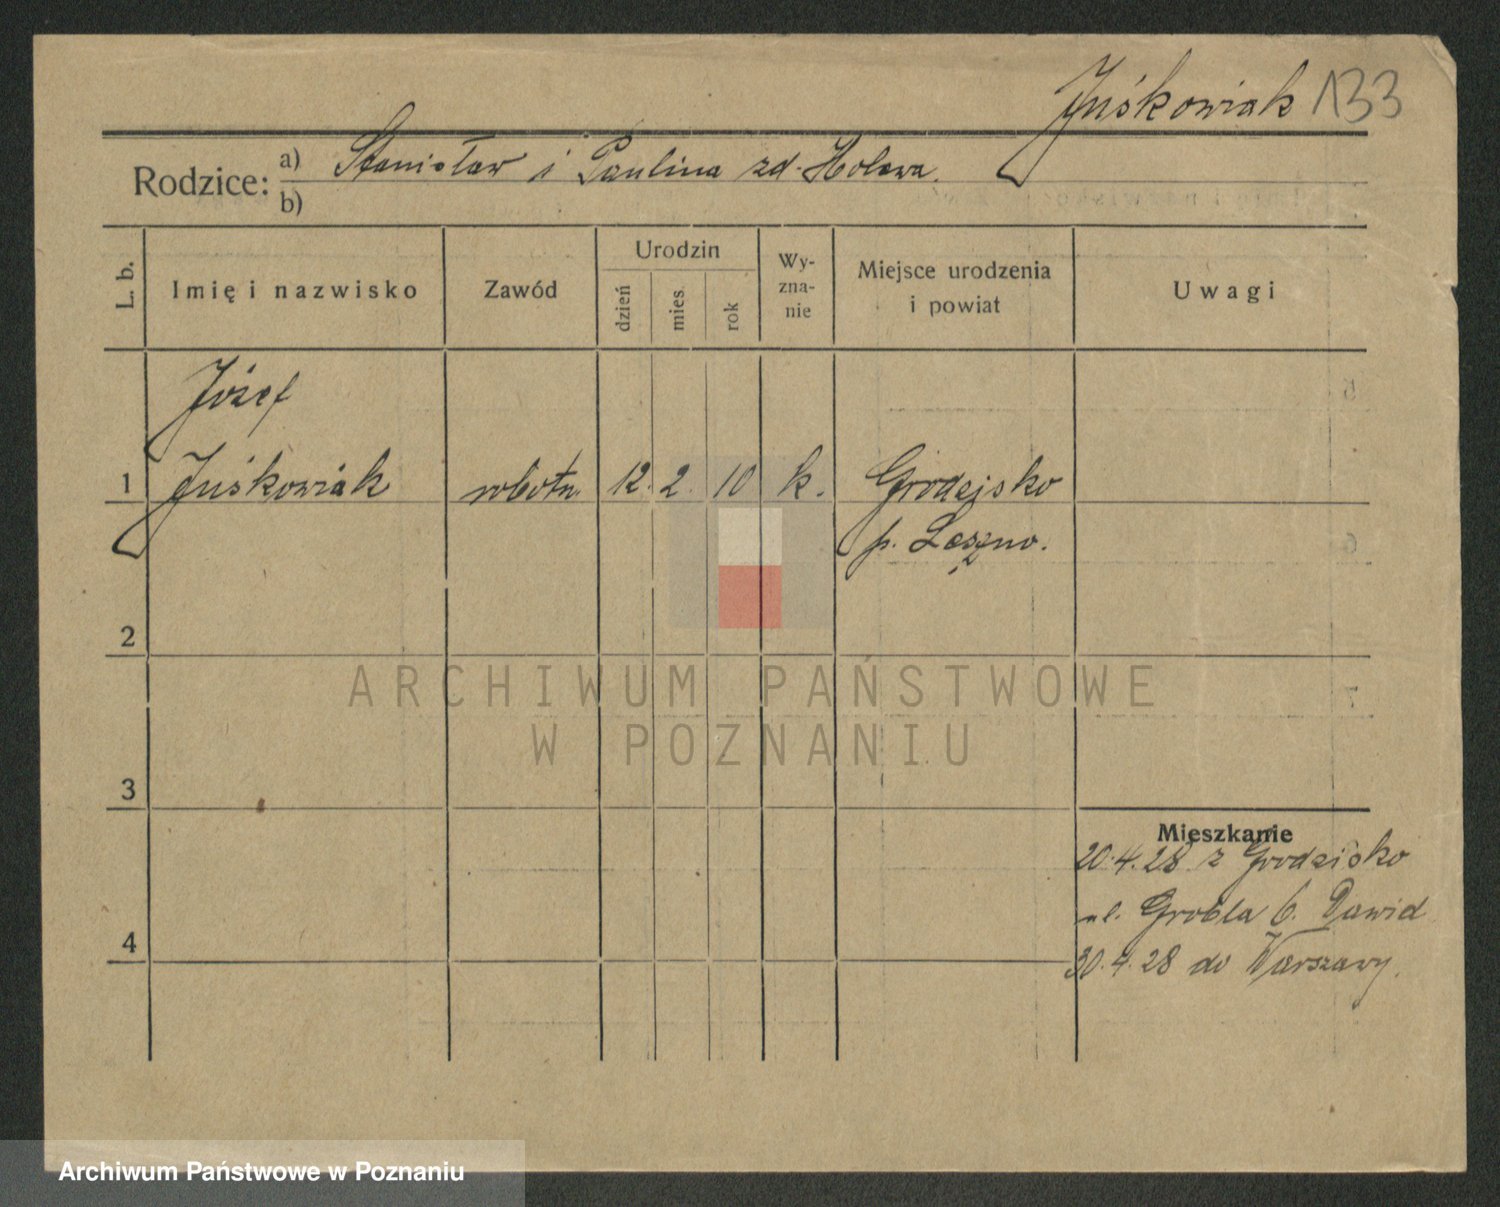 Juśkowiak 133
Rodzice: a) Stanisław i Paulina zd. Holewa.
b)
L. b.
Imię i nazwisko
Zawód
Urodzin
dzień
mies.
rok
Wy-
zna-
nie
Miejsce urodzenia
i powiat
Uwagi
Józef
1 Juśkowiak robotn. 12. 2. 10 k. Grodzisko
p. Leszno.
2
ARCHIWUM PAŃSTWOWE
W POZNANIU
3
Mieszkanie
20.4.28 z Grodzisko
ul. Grobla 6. Dawid
4
30.4.28 do Warszawy.
Archiwum Państwowe w Poznaniu